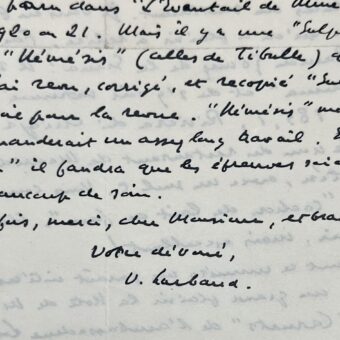 paru dans "L'Éventail de Mme
1920 ou 21. Mais il y a une "Sulp
"Némésis" (celles de Tibulle) q
ai revu, corrigé, et recopié "Su
pour la revue. "Némésis" me
manderait un assez long travail. E
" il faudra que les épreuves soie
eaucoup de soin.
fois, merci, cher Monsieur, et
Votre dévoué,
V. Larbaud.